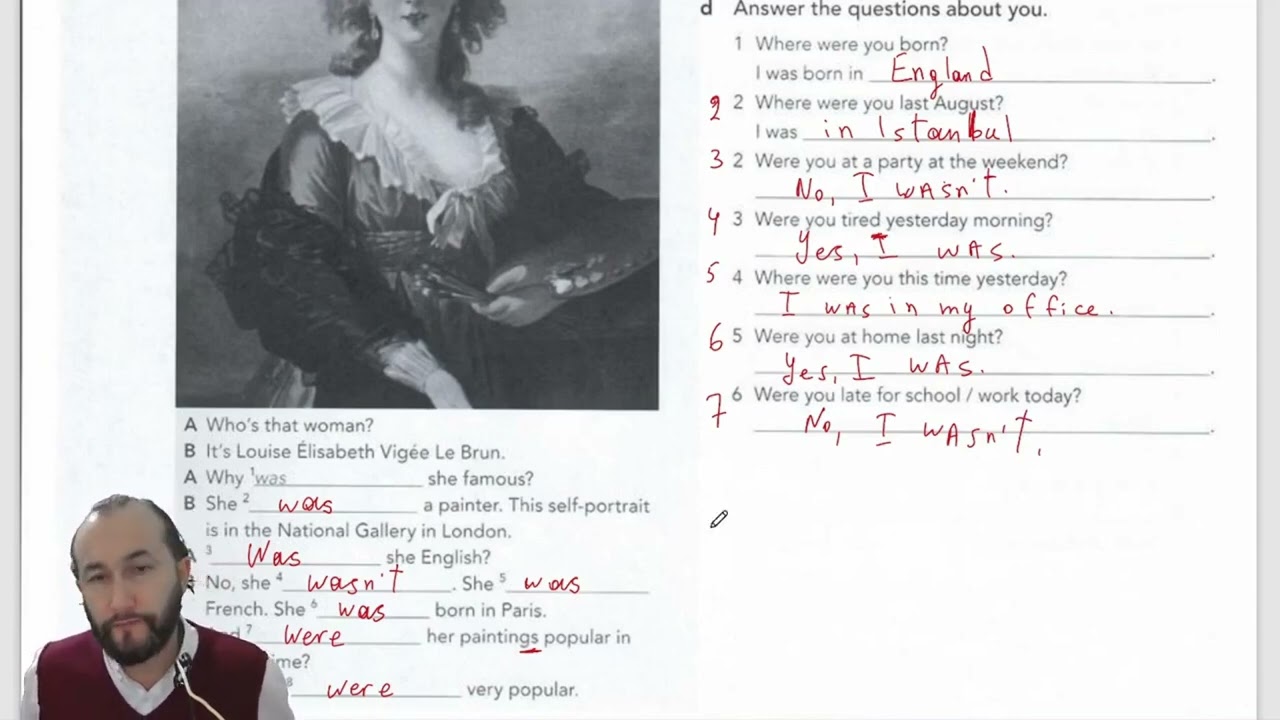 A Who's that woman?
B It's Louise Élisabeth Vigée Le Brun.
A Why ¹was she famous?
B She ² was a painter. This self-portrait
is in the National Gallery in London.
³ Was she English?
No, she ⁴ wasn't. She ⁵ was
French. She ⁶ was born in Paris.
⁷ were her paintings popular in
⁸ were very popular.
d Answer the questions about you.
1 Where were you born?
I was born in England.
2 2 Where were you last August?
I was in Istanbul.
3 2 Were you at a party at the weekend?
No, I wasn't.
4 3 Were you tired yesterday morning?
Yes, I was.
5 4 Where were you this time yesterday?
I was in my office.
6 5 Were you at home last night?
Yes, I was.
7 6 Were you late for school / work today?
No, I wasn't.